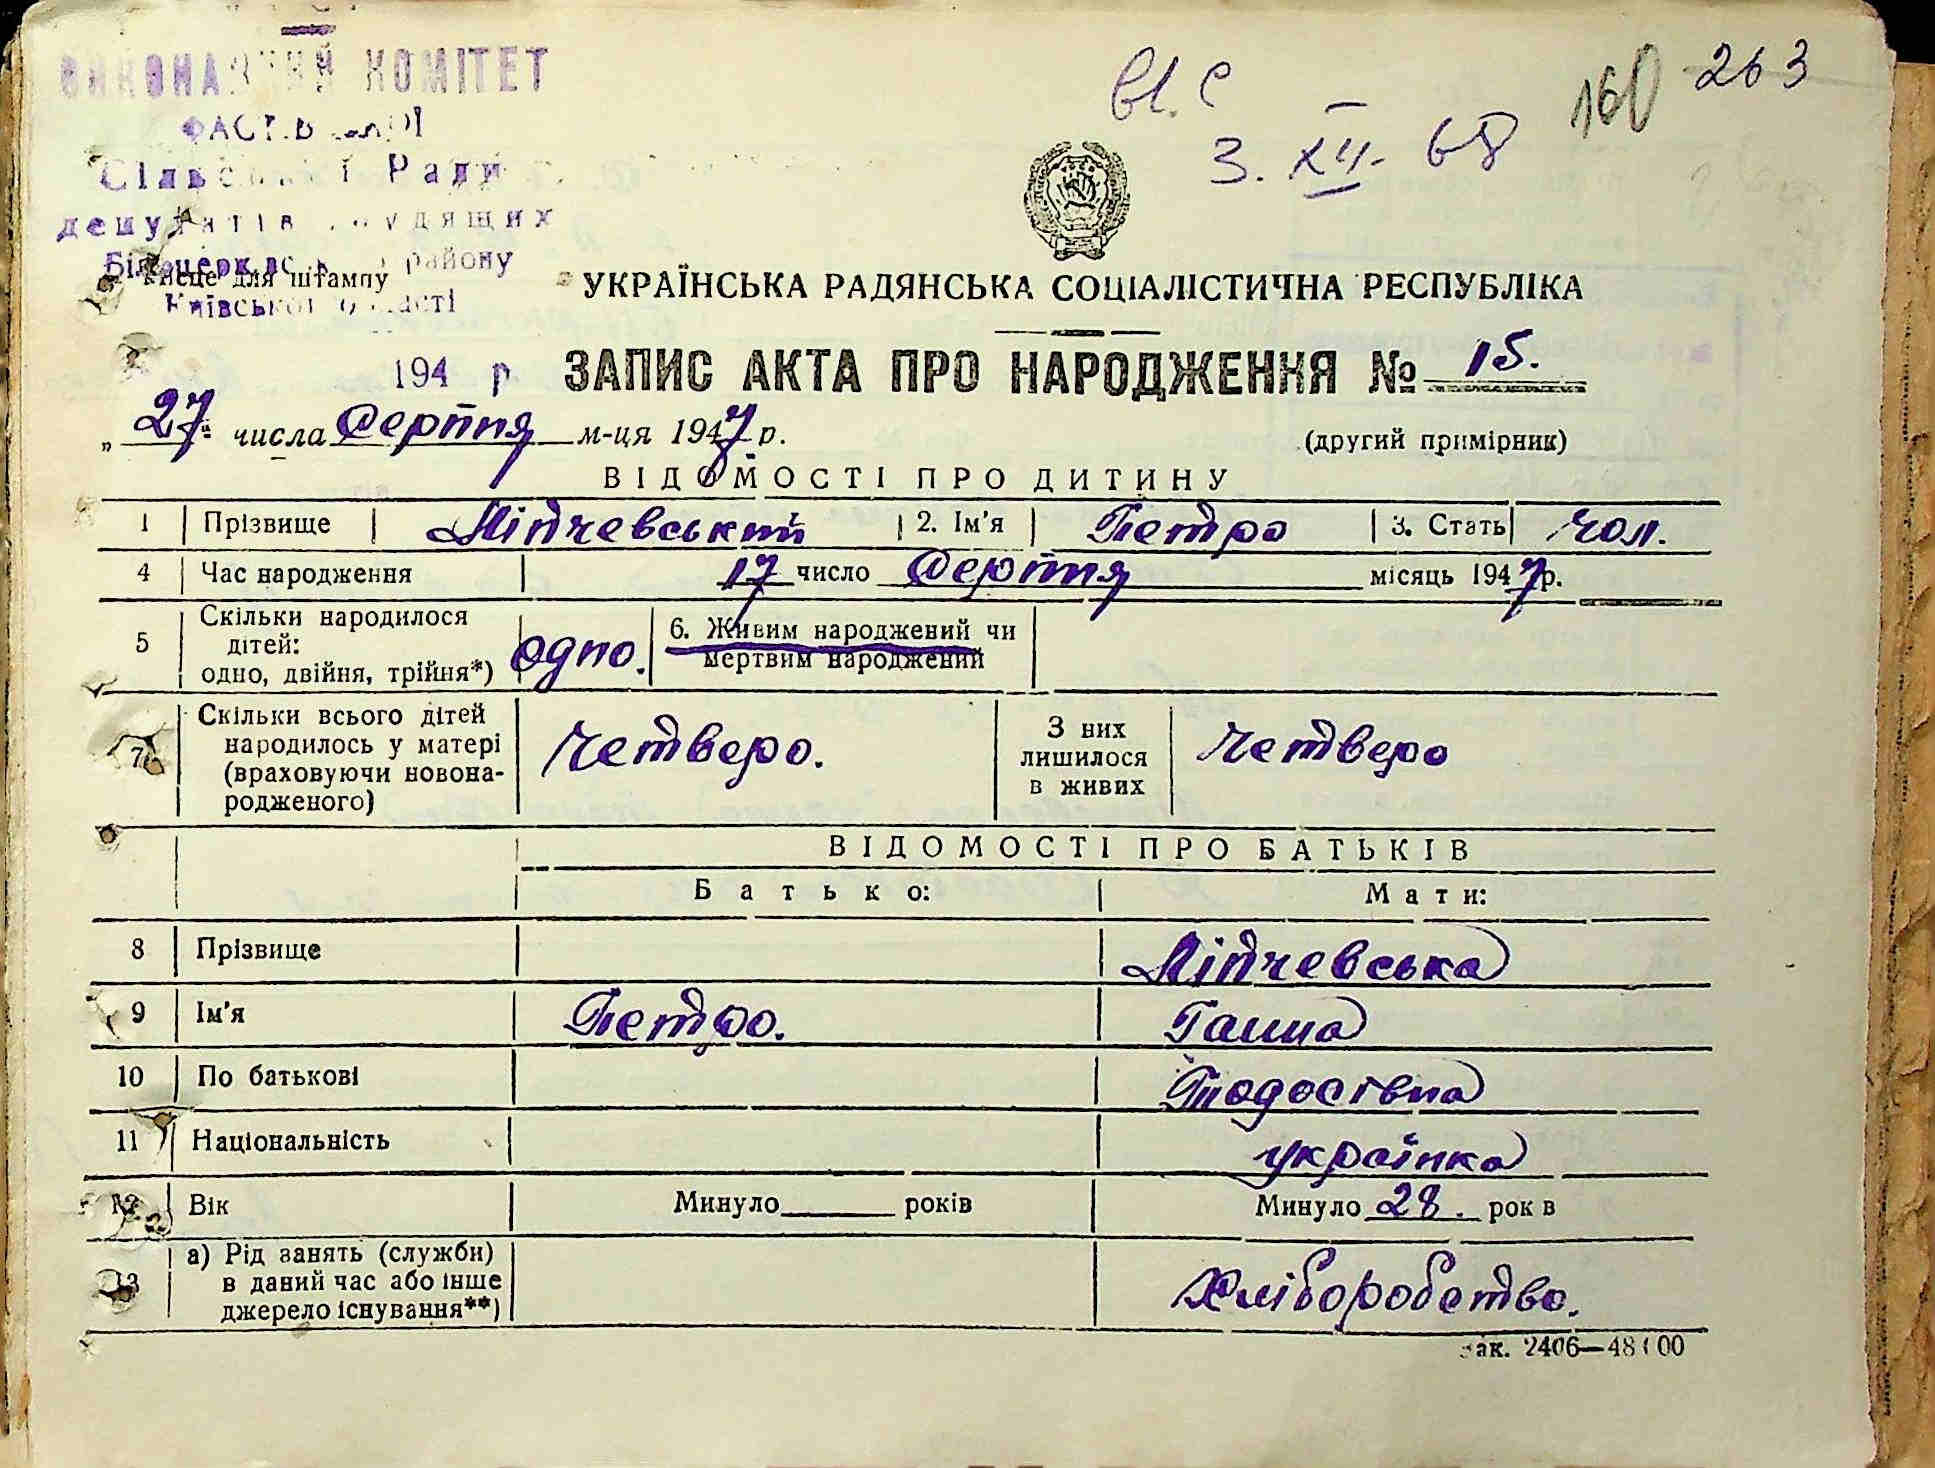 КОМІТЕТ
Сільської Ради
депутатів трудящих
Білоцерківського району
Київської області
Місце для штампу
194 р
вл. с
3. XII. 68
160
263
УКРАЇНСЬКА РАДЯНСЬКА СОЦІАЛІСТИЧНА РЕСПУБЛІКА
ЗАПИС АКТА ПРО НАРОДЖЕННЯ № 15.
„27" числа Серпня м-ця 1947 р.
(другий примірник)
ВІДОМОСТІ ПРО ДИТИНУ
1 Прізвище Ліпчевський 2. Ім'я Петро 3. Стать чол.
4 Час народження 17 число Серпня місяць 1947 р.
5 Скільки народилося дітей: одно, двійня, трійня*) одно. 6. Живим народжений чи мертвим народжений
7 Скільки всього дітей народилось у матері (враховуючи новонародженого) Четверо. З них лишилося в живих Четверо
ВІДОМОСТІ ПРО БАТЬКІВ
Батько: Мати:
8 Прізвище Ліпчевська
9 Ім'я Петро. Ганна
10 По батькові Тодосівна
11 Національність українка
12 Вік Минуло років Минуло 28. рок в
13 а) Рід занять (служби) в даний час або інше джерело існування**) Хліборобство.
Зак. 2406—48000